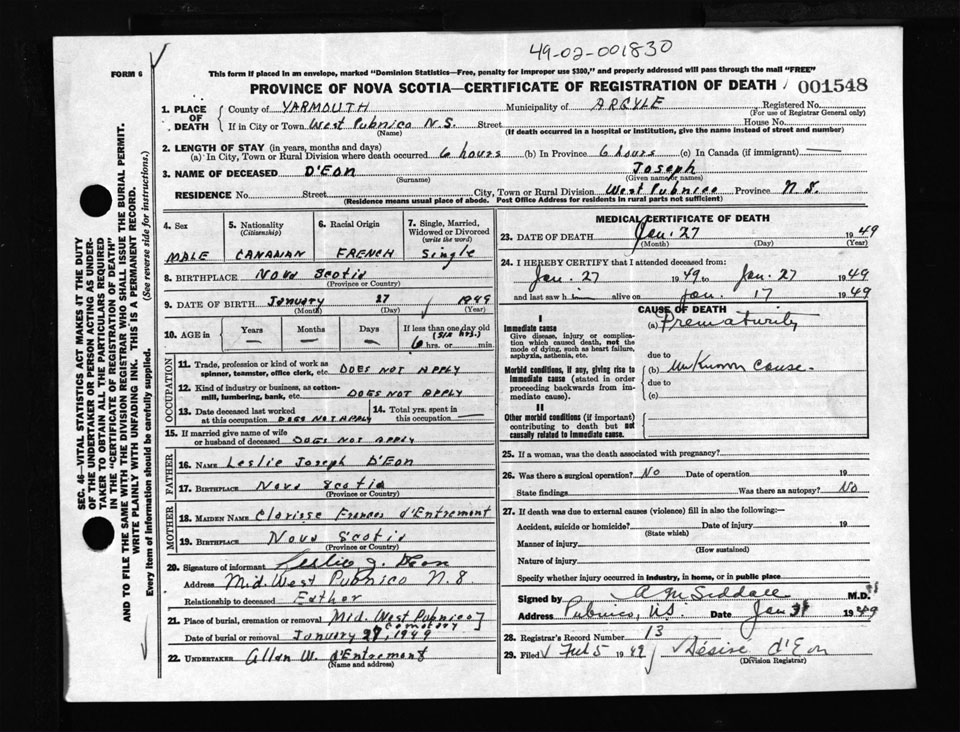 49-02-001830
FORM 6
This form if placed in an envelope, marked "Dominion Statistics—Free, penalty for improper use $300," and properly addressed will pass through the mail "FREE"
PROVINCE OF NOVA SCOTIA—CERTIFICATE OF REGISTRATION OF DEATH 001548
1. PLACE OF DEATH
County of YARMOUTH Municipality of ARGYLE Registered No.
(For use of Registrar General only)
If in City or Town West Pubnico N.S. Street House No.
(Name) (If death occurred in a hospital or institution, give the name instead of street and number)
2. LENGTH OF STAY (in years, months and days)
(a) In City, Town or Rural Division where death occurred 6 hours (b) In Province 6 hours (c) In Canada (if immigrant) —
3. NAME OF DECEASED D'Eon Joseph
(Surname) (Given name or names)
RESIDENCE No. Street City, Town or Rural Division West Pubnico Province N.S.
(Residence means usual place of abode. Post Office Address for residents in rural parts not sufficient)
4. Sex
MALE
5. Nationality
(Citizenship)
CANADIAN
6. Racial Origin
FRENCH
7. Single, Married, Widowed or Divorced
(write the word)
Single
8. BIRTHPLACE Nova Scotia
(Province or Country)
9. DATE OF BIRTH January 27 1949
(Month) (Day) (Year)
10. AGE in
Years Months Days If less than one day old
— — — (six hrs.)
6 hrs. or min.
OCCUPATION
11. Trade, profession or kind of work as spinner, teamster, office clerk, etc. DOES NOT APPLY
12. Kind of industry or business, as cotton-mill, lumbering, bank, etc. DOES NOT APPLY
13. Date deceased last worked at this occupation DOES NOT APPLY
14. Total yrs. spent in this occupation —
15. If married give name of wife or husband of deceased DOES NOT APPLY
FATHER
16. NAME Leslie Joseph D'Eon
17. BIRTHPLACE Nova Scotia
(Province or Country)
MOTHER
18. MAIDEN NAME Clarisse Frances d'Entremont
19. BIRTHPLACE Nova Scotia
(Province or Country)
20. Signature of informant Leslie J. Deon
Address Mid. West Pubnico N.S
Relationship to deceased Father
21. Place of burial, cremation or removal Mid. West Pubnico Cemetery
Date of burial or removal January 27, 1949
22. UNDERTAKER Allan W. d'Entremont
(Name and address)
MEDICAL CERTIFICATE OF DEATH
23. DATE OF DEATH Jan. 27 1949
(Month) (Day) (Year)
24. I HEREBY CERTIFY that I attended deceased from:
Jan. 27 1949 to Jan. 27 1949
and last saw him alive on Jan. 17 1949
CAUSE OF DEATH
I
Immediate cause
Give disease, injury or complication which caused death, not the mode of dying, such as heart failure, asphyxia, asthenia, etc.
(a) Prematurity
due to
Morbid conditions, if any, giving rise to immediate cause (stated in order proceeding backwards from immediate cause).
(b) Unknown cause.
due to
(c)
II
Other morbid conditions (if important) contributing to death but not causally related to immediate cause.
25. If a woman, was the death associated with pregnancy?
26. Was there a surgical operation? No Date of operation 19
State findings Was there an autopsy? No
27. If death was due to external causes (violence) fill in also the following:—
Accident, suicide or homicide? Date of injury 19
(State which)
Manner of injury
(How sustained)
Nature of injury
Specify whether injury occurred in industry, in home, or in public place
Signed by A M Siddall M.D.
Address Pubnico, N.S. Date Jan 31 1949
28. Registrar's Record Number 13
29. Filed Feb 5 1949 Désire d'Eon
(Division Registrar)
SEC. 46—VITAL STATISTICS ACT MAKES IT THE DUTY
OF THE UNDERTAKER OR PERSON ACTING AS UNDERTAKER TO OBTAIN ALL THE PARTICULARS REQUIRED
IN THE "CERTIFICATE OF REGISTRATION OF DEATH"
AND TO FILE THE SAME WITH THE DIVISION REGISTRAR WHO SHALL ISSUE THE BURIAL PERMIT.
WRITE PLAINLY WITH UNFADING INK. THIS IS A PERMANENT RECORD.
Every item of information should be carefully supplied. (See reverse side for instructions.)